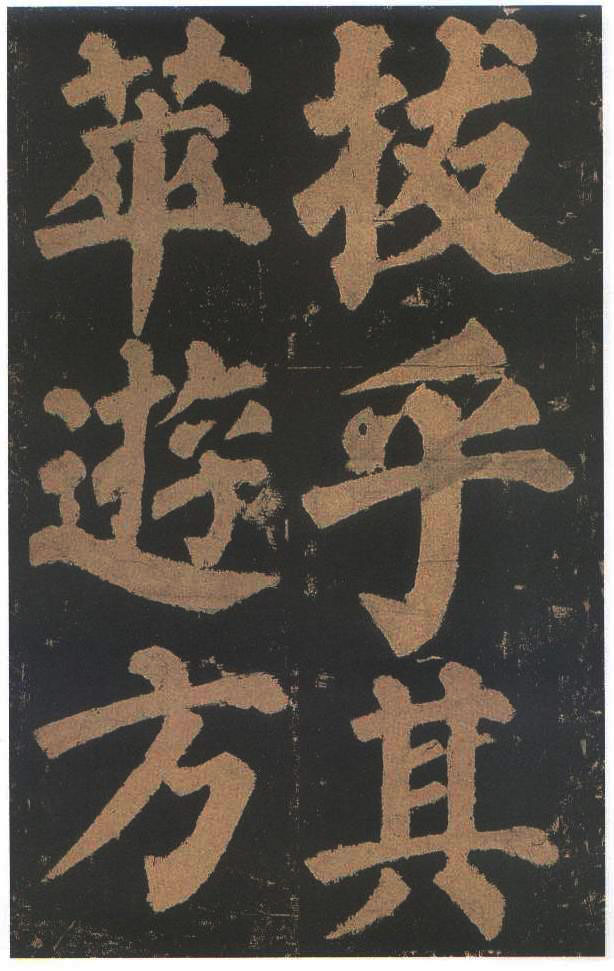 拔乎其
萃遊方